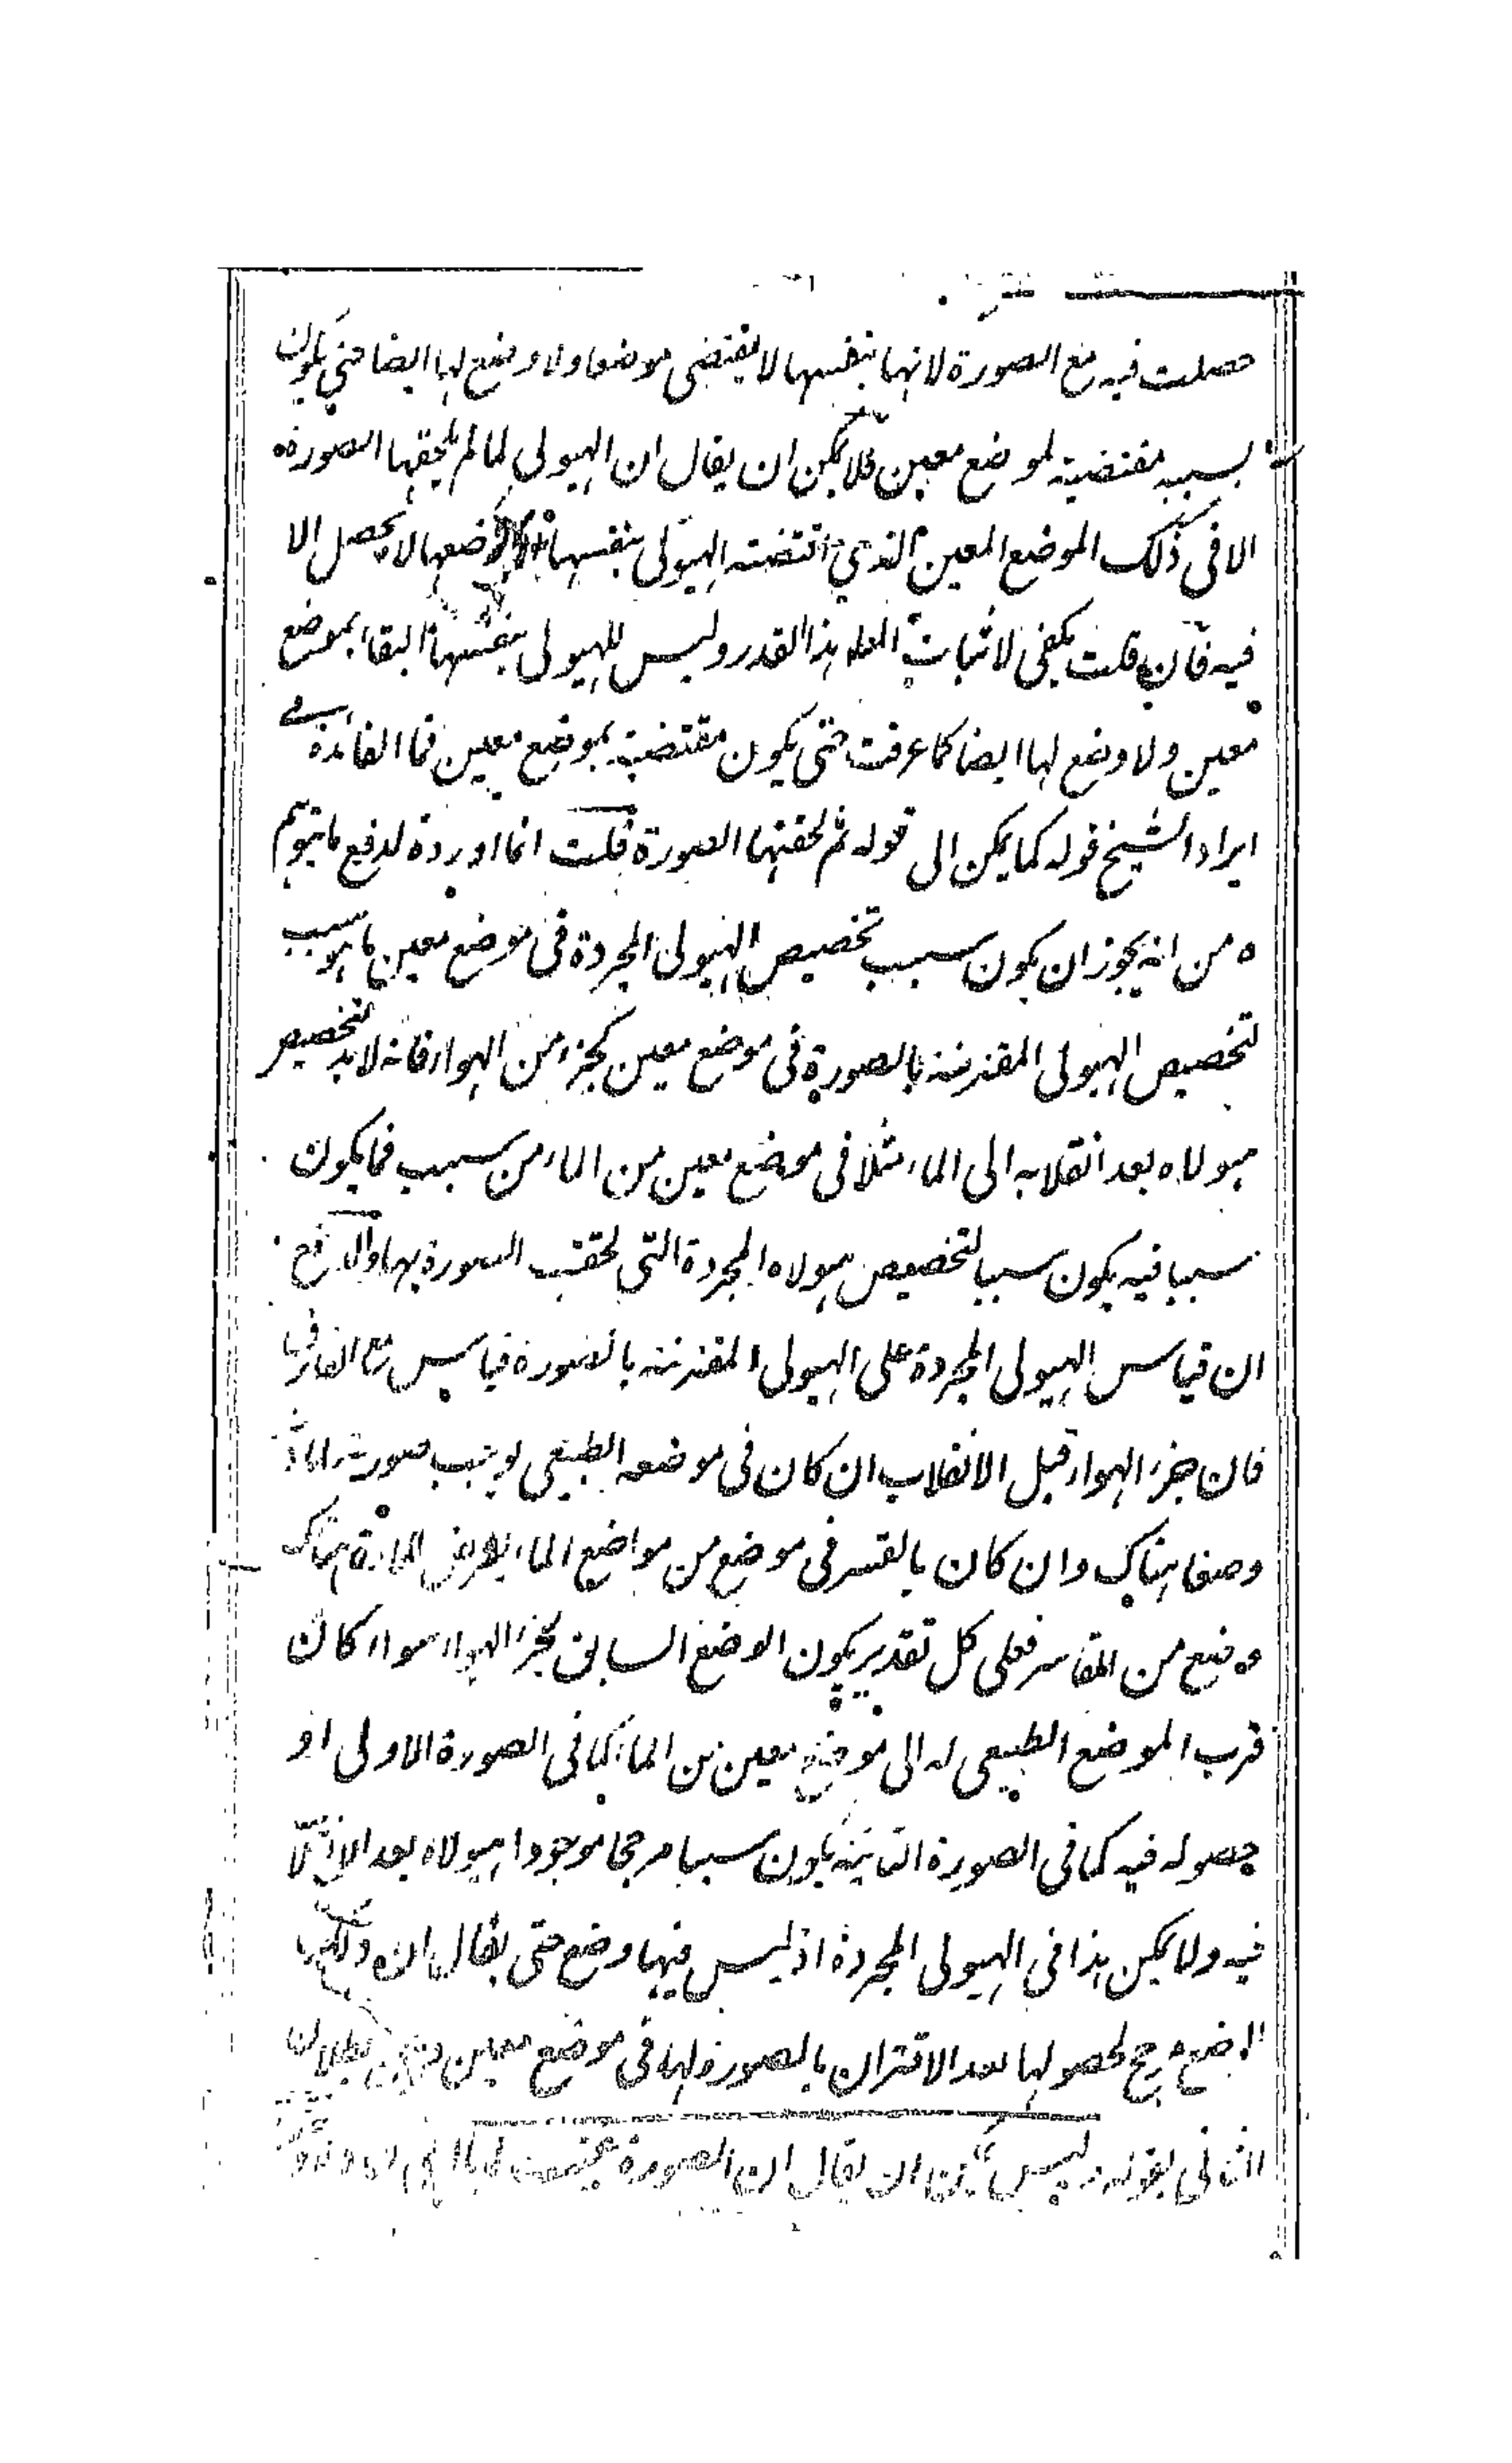 حصلت فيه مع الصورة لانها بنفسها لا يقتضى موضعا ولا وضع لها ايضا حتى يكون
بسببه مقتضية لموضع معين فلا يمكن ان يقال ان الهيولى لما لم يلحقها الصورة
الا فى ذلك الموضع المعين الذى اقتضته الهيولى بنفسها او وضعها لا يحصل الا
فيه فان قلت يكفى لاثبات المط هذا القدر وليس للهيولى بنفسها القا بموضع
معين ولا وضع لها ايضا كما عرفت حتى يكون مقتضية بموضع معين فما الفائدة فى
ايراد الشيخ قوله كما يمكن الى قوله ثم لحقتها الصورة قلت انما اورده لدفع ما يتوهم
ه من انه يجوز ان يكون سبب تخصيص الهيولى المجردة فى موضع معين ما هو سبب
لتخصيص الهيولى المقترنة بالصورة فى موضع معين كجزء من الهواء فانه لا بد لتخصيص
هيولاه بعد انقلابه الى الماء مثلا فى موضع معين من الماء من سبب فما يكون
سببا فيه يكون سببا لتخصيص هيولاه المجردة التى لحقت الصورة بها والدفع
ان قياس الهيولى المجردة على الهيولى المقترنة بالصورة قياس مع الفارق
فان جزء الهواء قبل الانقلاب ان كان فى موضعه الطبيعى يوجب صورته المادة
وضعا هناك وان كان بالقسر فى موضع من مواضع الماء يعرض المادة هناك
وضع من القاسر فعلى كل تقدير يكون الوضع السابق لجزء الهواء سواء كان
قرب الموضع الطبيعى له الى موضع معين من الماء كما فى الصورة الاولى او
حصوله فيه كما فى الصورة الثانية يكون سببا مرجحا موجودا لهيولاه بعد الانقلا
فيه ولا يمكن هذا فى الهيولى المجردة اذ ليس فيها وضع حتى يقال ان ذلك
الوضع مرجح لحصولها بعد الاقتران بالصورة لها فى موضع معين بطلان
الثانى بقوله وليس يمكن ان يقال ان الصورة